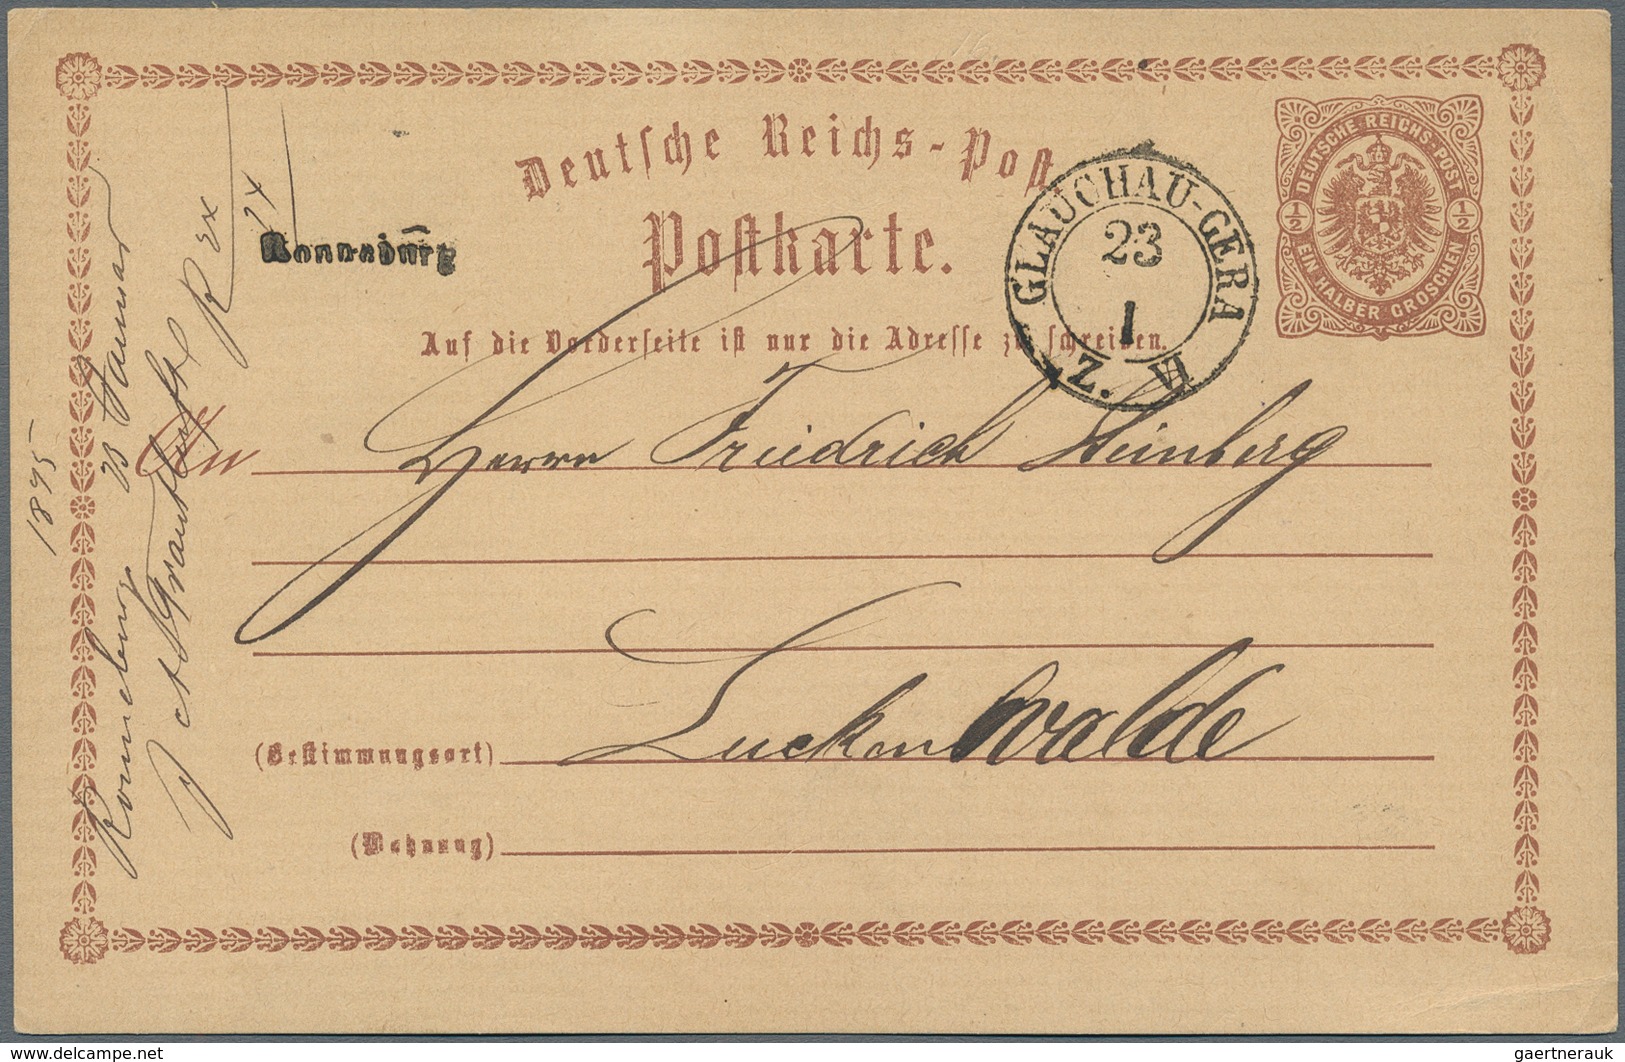 Deutsche Reichs-Post
Postkarte.
Auf die Vorderseite ist nur die Adresse zu schreiben.
DEUTSCHE REICHS-POST
1/2 1/2
EIN HALBER GROSCHEN
GLAUCHAU-GERA
23
1
Z. VI
Ronneburg
An Herrn Friedrich Steinberg
(Bestimmungsort) Luckenwalde
(Wohnung)
Ronneburg 23 Januar
1875
gaertnerauk